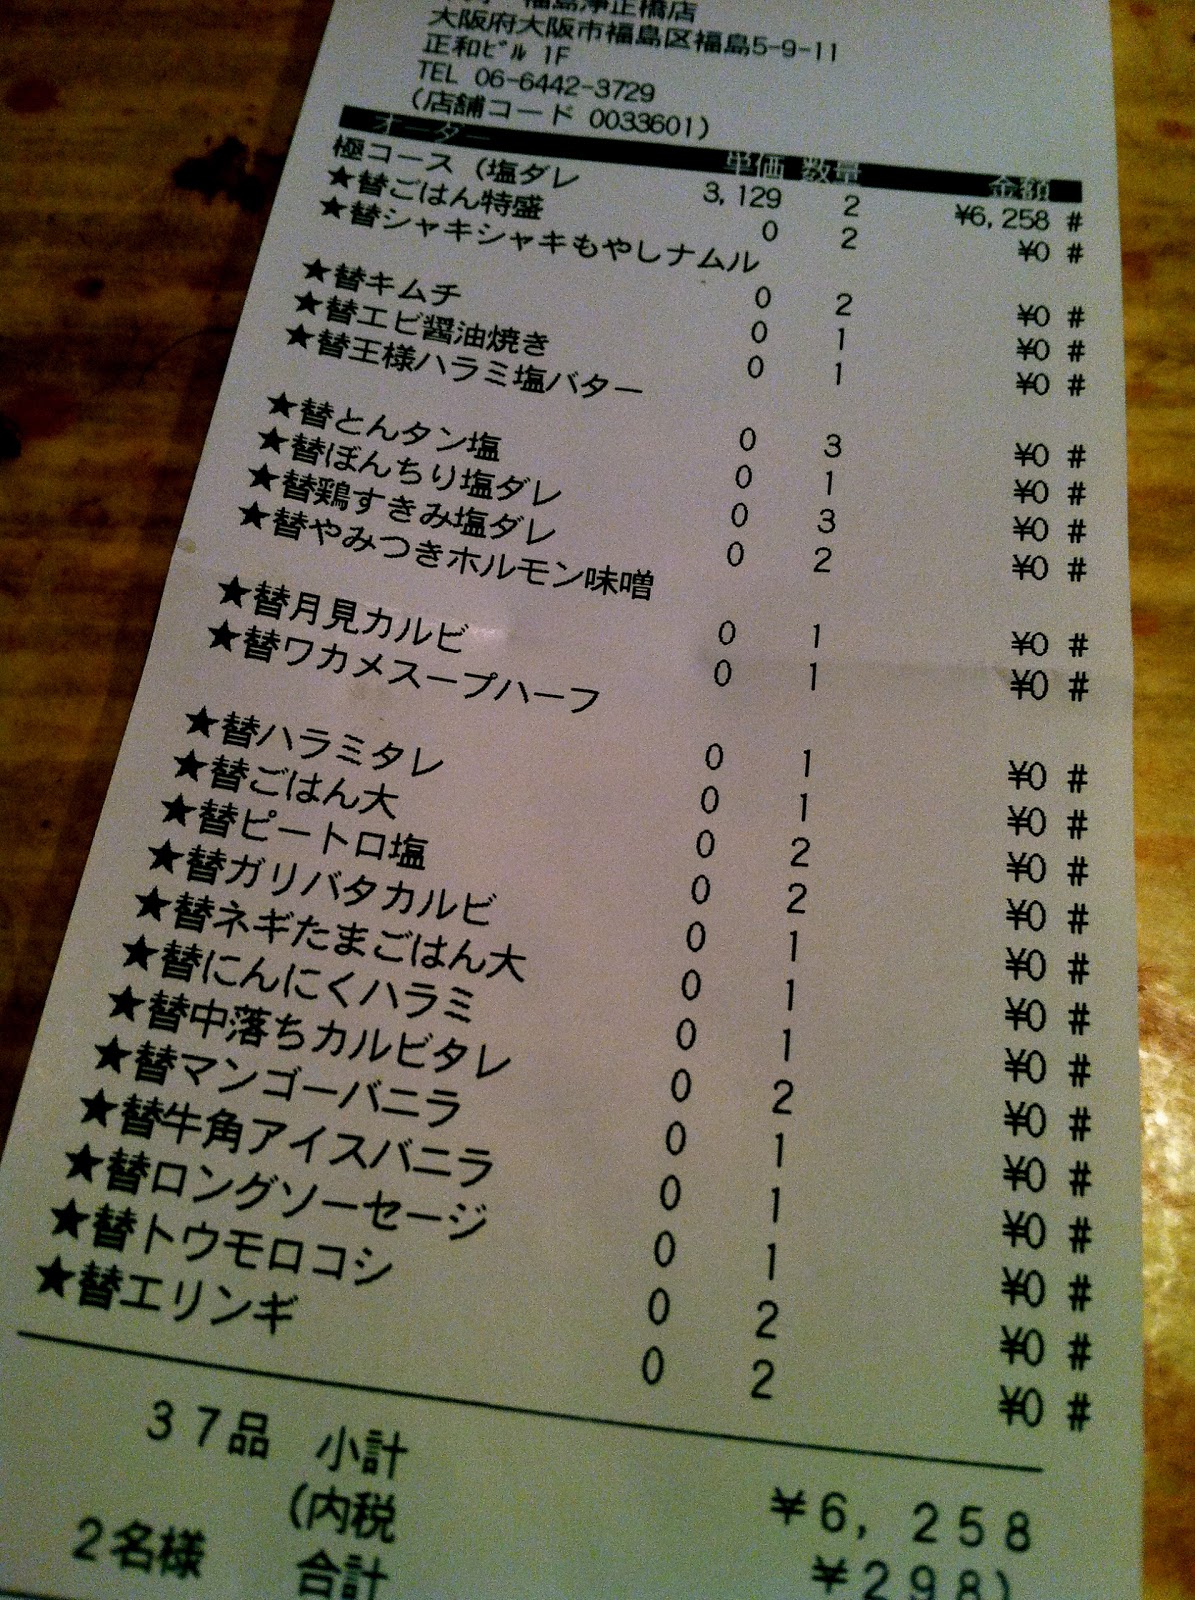 福島浄正橋店
大阪府大阪市福島区福島5-9-11
正和ビル 1F
TEL 06-6442-3729
(店舗コード 0033601)
オーダー 単価 数量 金額
極コース (塩ダレ 3,129 2 ¥6,258 #
★替ごはん特盛 0 2 ¥0 #
★替シャキシャキもやしナムル
0 2 ¥0 #
★替キムチ 0 1 ¥0 #
★替エビ醤油焼き 0 1 ¥0 #
★替王様ハラミ塩バター
0 3 ¥0 #
★替とんタン塩 0 1 ¥0 #
★替ぼんちり塩ダレ 0 3 ¥0 #
★替鶏すきみ塩ダレ 0 2 ¥0 #
★替やみつきホルモン味噌
0 1 ¥0 #
★替月見カルビ 0 1 ¥0 #
★替ワカメスープハーフ
0 1 ¥0 #
★替ハラミタレ 0 1 ¥0 #
★替ごはん大 0 2 ¥0 #
★替ピートロ塩 0 2 ¥0 #
★替ガリバタカルビ 0 1 ¥0 #
★替ネギたまごはん大 0 1 ¥0 #
★替にんにくハラミ 0 1 ¥0 #
★替中落ちカルビタレ 0 2 ¥0 #
★替マンゴーバニラ 0 1 ¥0 #
★替牛角アイスバニラ 0 1 ¥0 #
★替ロングソーセージ 0 1 ¥0 #
★替トウモロコシ 0 2 ¥0 #
★替エリンギ 0 2 ¥0 #
37品 小計 ¥6,258
(内税 ¥298)
2名様 合計